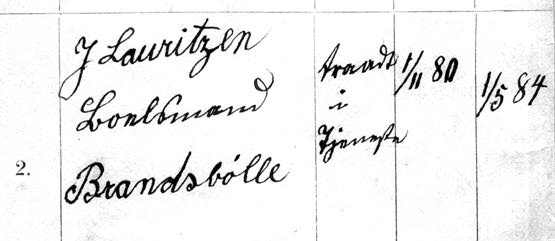 J Lauritzen
Boelsmand
2. Brandsbölle
traadt
i
Tjeneste
1/11 80
1/5 84